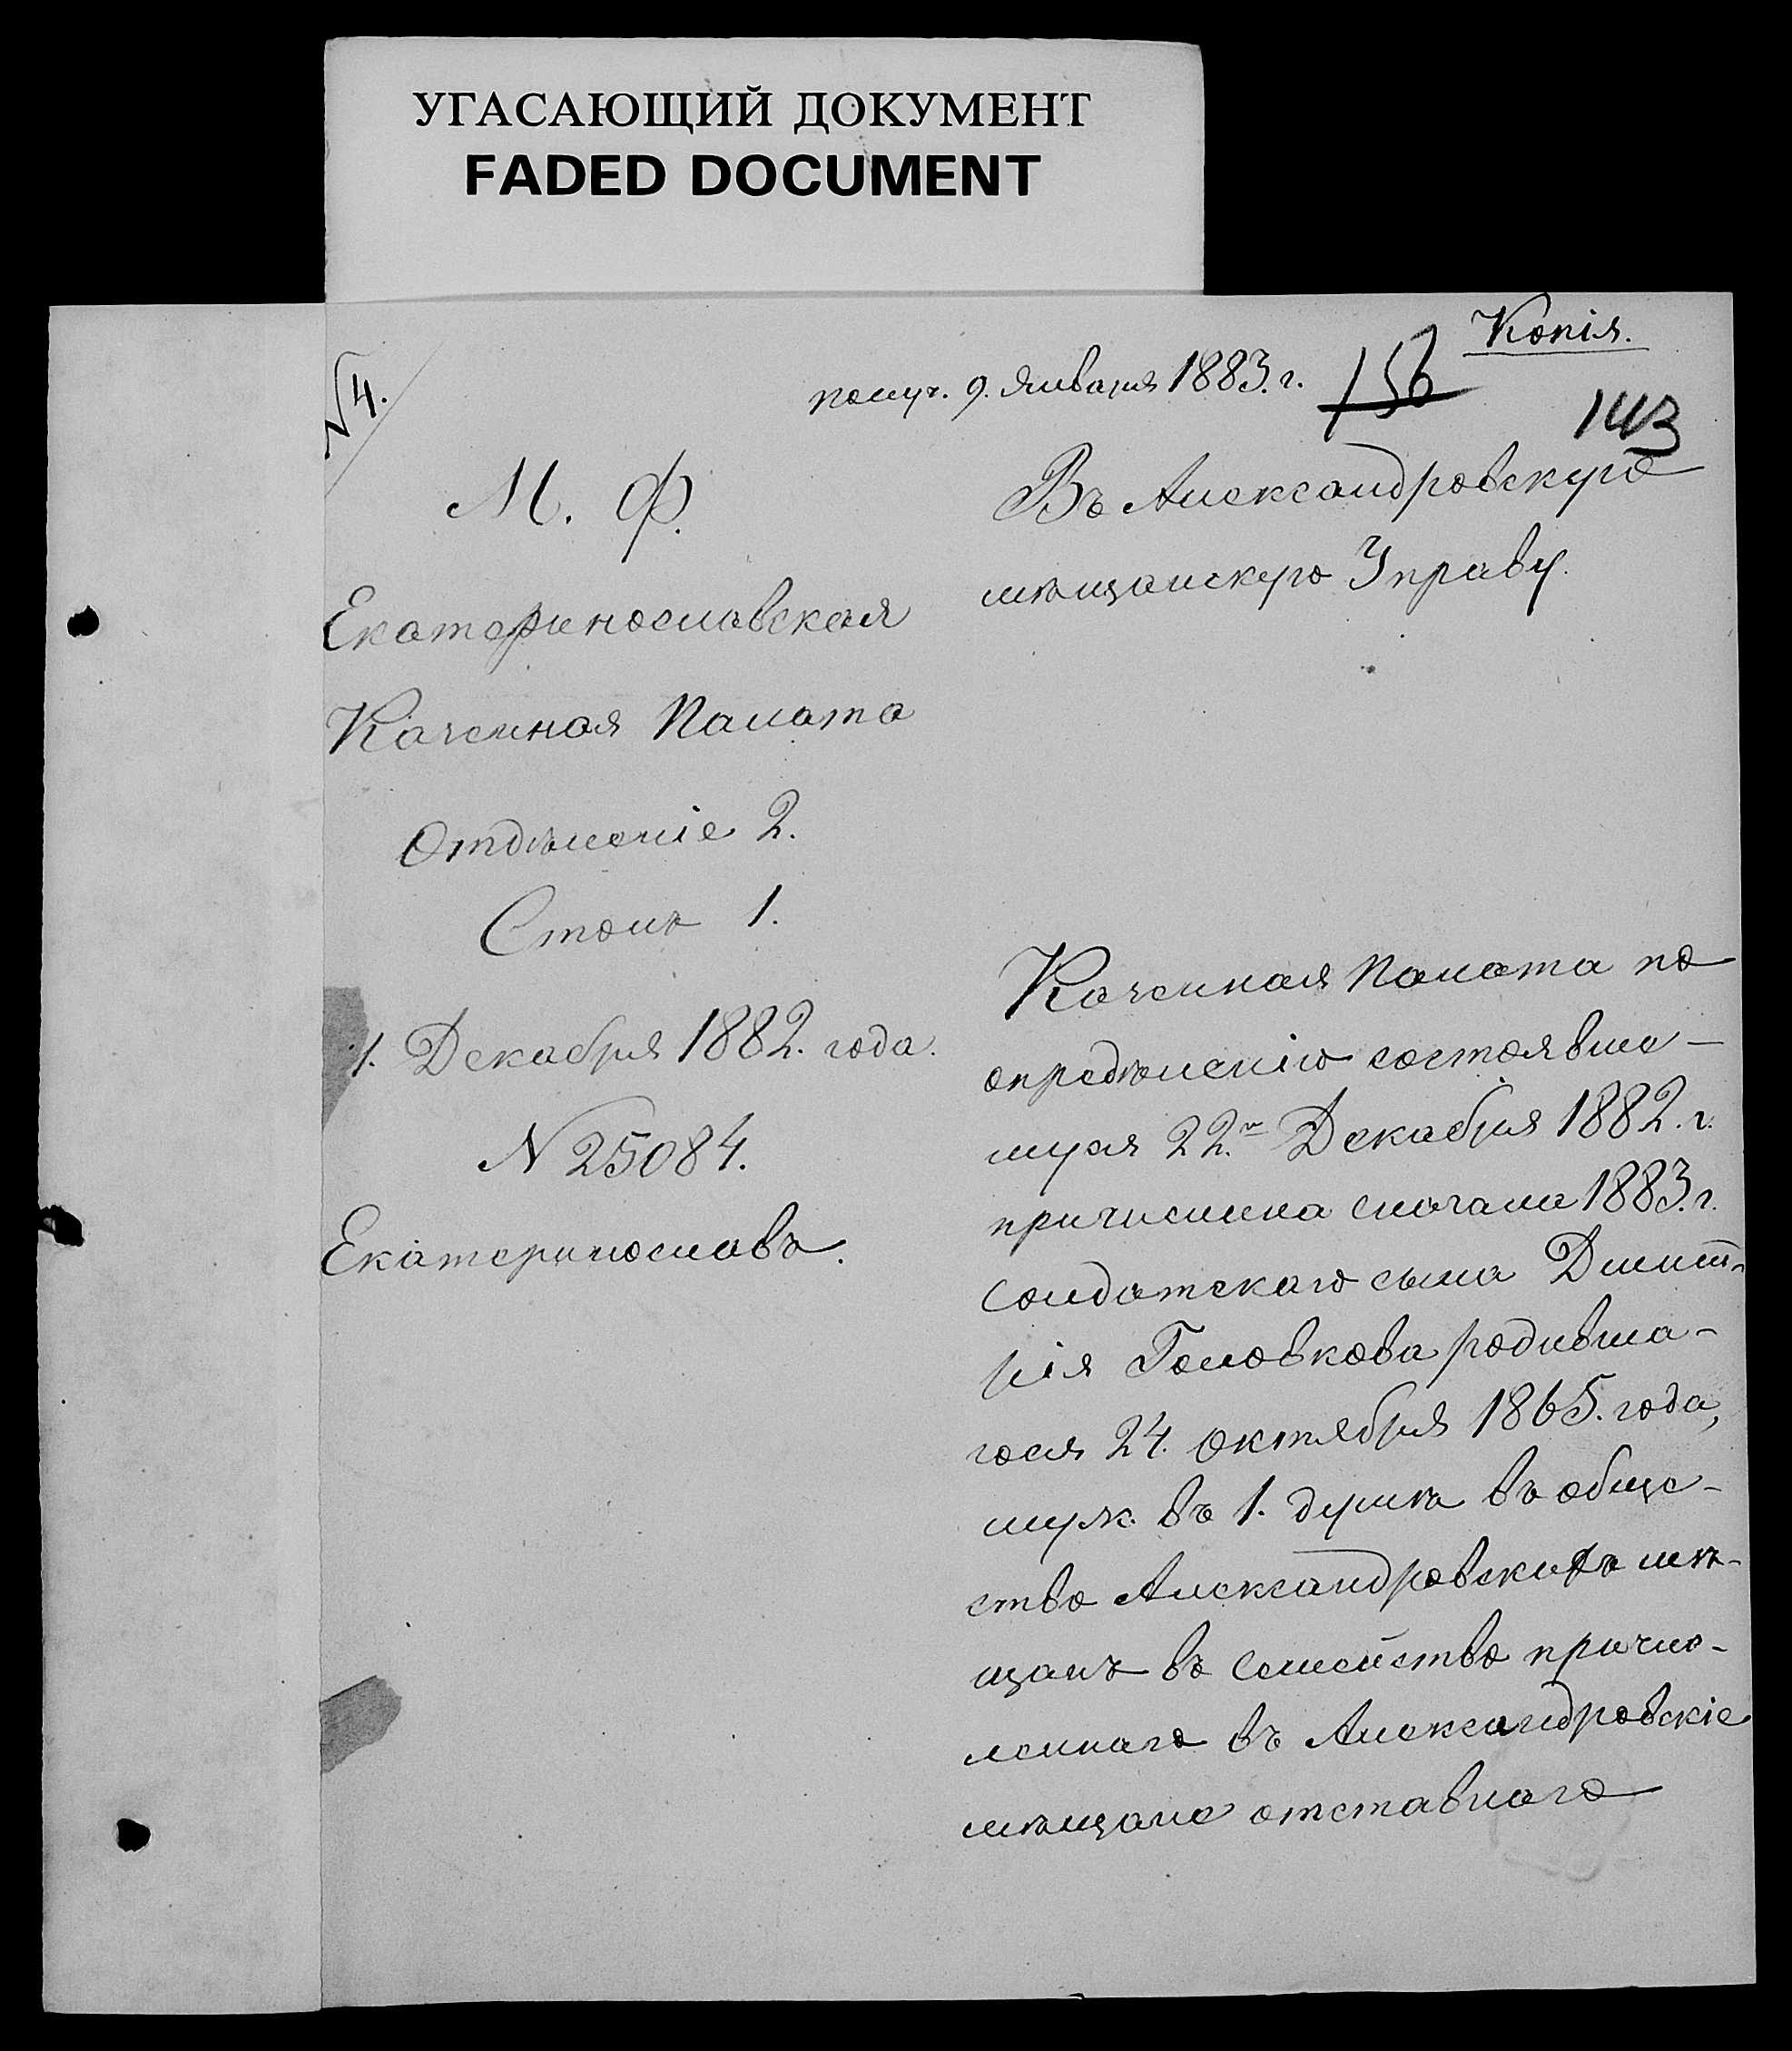 УГАСАЮЩИЙ ДОКУМЕНТ
FADED DOCUMENT
Копія.
получ. 9. Января 1883. г.
156
143
№ 4.
М. Ф.
Екатеринославская
Казенная Палата
Отдѣленіе 2.
Столъ 1.
1. Декабря 1882. года.
№ 25084.
Екатеринославъ.
Въ Александровскую
мѣщанскую Управу.
Казенная Палата по
опредѣленію состоявше-
муся 22.го Декабря 1882. г.
причислила сначала 1883. г.
солдатскаго сына Дмит-
рія Головкова родивша-
гося 24. октября 1865. года,
муж. въ 1. душѣ въ обще-
ство Александровскихъ мѣ-
щанъ въ семейство причис-
леннаго въ Александровскіе
мѣщане отставнаго